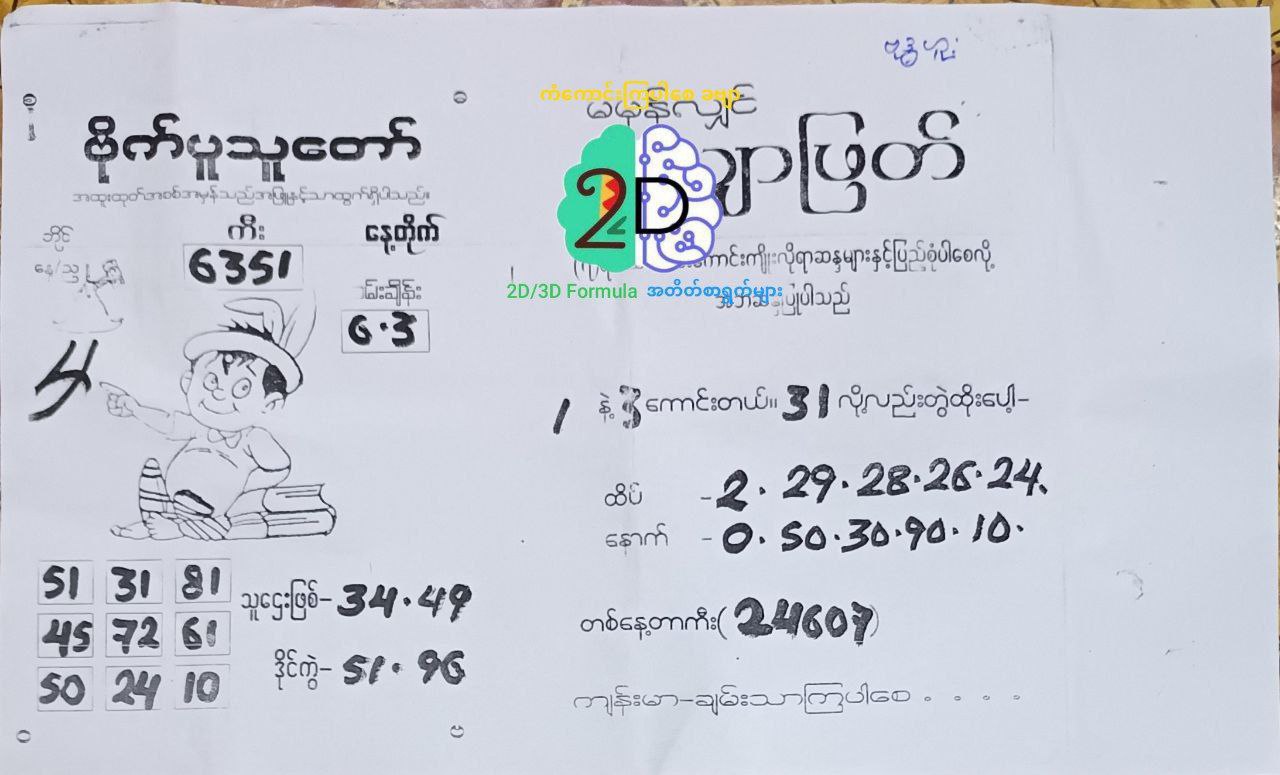 ဗုဒ္ဓဟူး
ဗိုက်ပူသူတော်
အထူးထုတ်အစစ်အမှန်သည်အဖြူနှင့်သာထွက်ရှိပါသည်။
ဘိုင်
ကီး
နေ့တိုက်
6351
ဝမ်းချိန်း
6.3
4
51 31 81
45 72 61
50 24 10
သူဌေးဖြစ်-34.49
ဒိုင်ကွဲ-51.96
ကံကောင်းကြပါစေ ခဗျာ
မမှန်လျှင်
လျှာဖြတ်
2D
ကောင်းကျိုးလိုရာဆန္ဒများနှင့်ပြည့်စုံပါစေလို့
2D/3D Formula အတိတ်စာရွက်များ
1 နဲ့ 3 ကောင်းတယ်။ 31 လို့လည်းတွဲထိုးပေါ့-
ထိပ် -2. 29.28.26.24.
နောက် -0. 50.30.90.10.
တစ်နေ့တာကီး(24607)
ကျန်းမာ-ချမ်းသာကြပါစေ . . . .